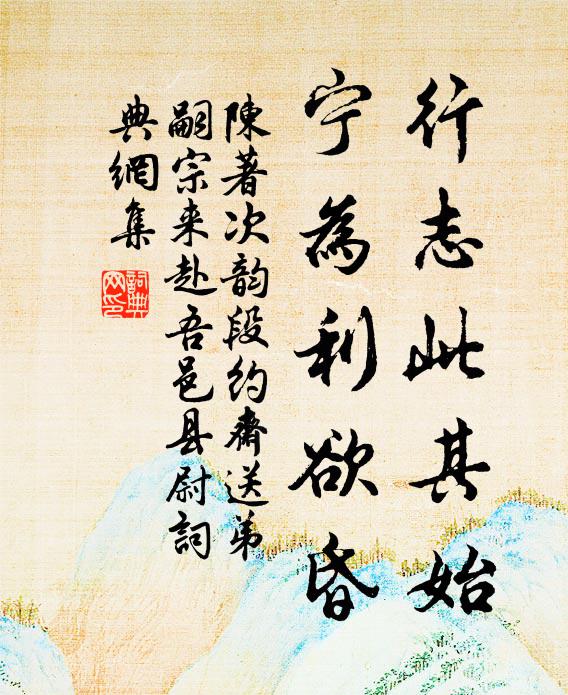 行志此其始
宁為利欲昏
陳著次韵段约齋送弟
嗣宗来赴吾邑县尉詞
典網集
詞典
网印